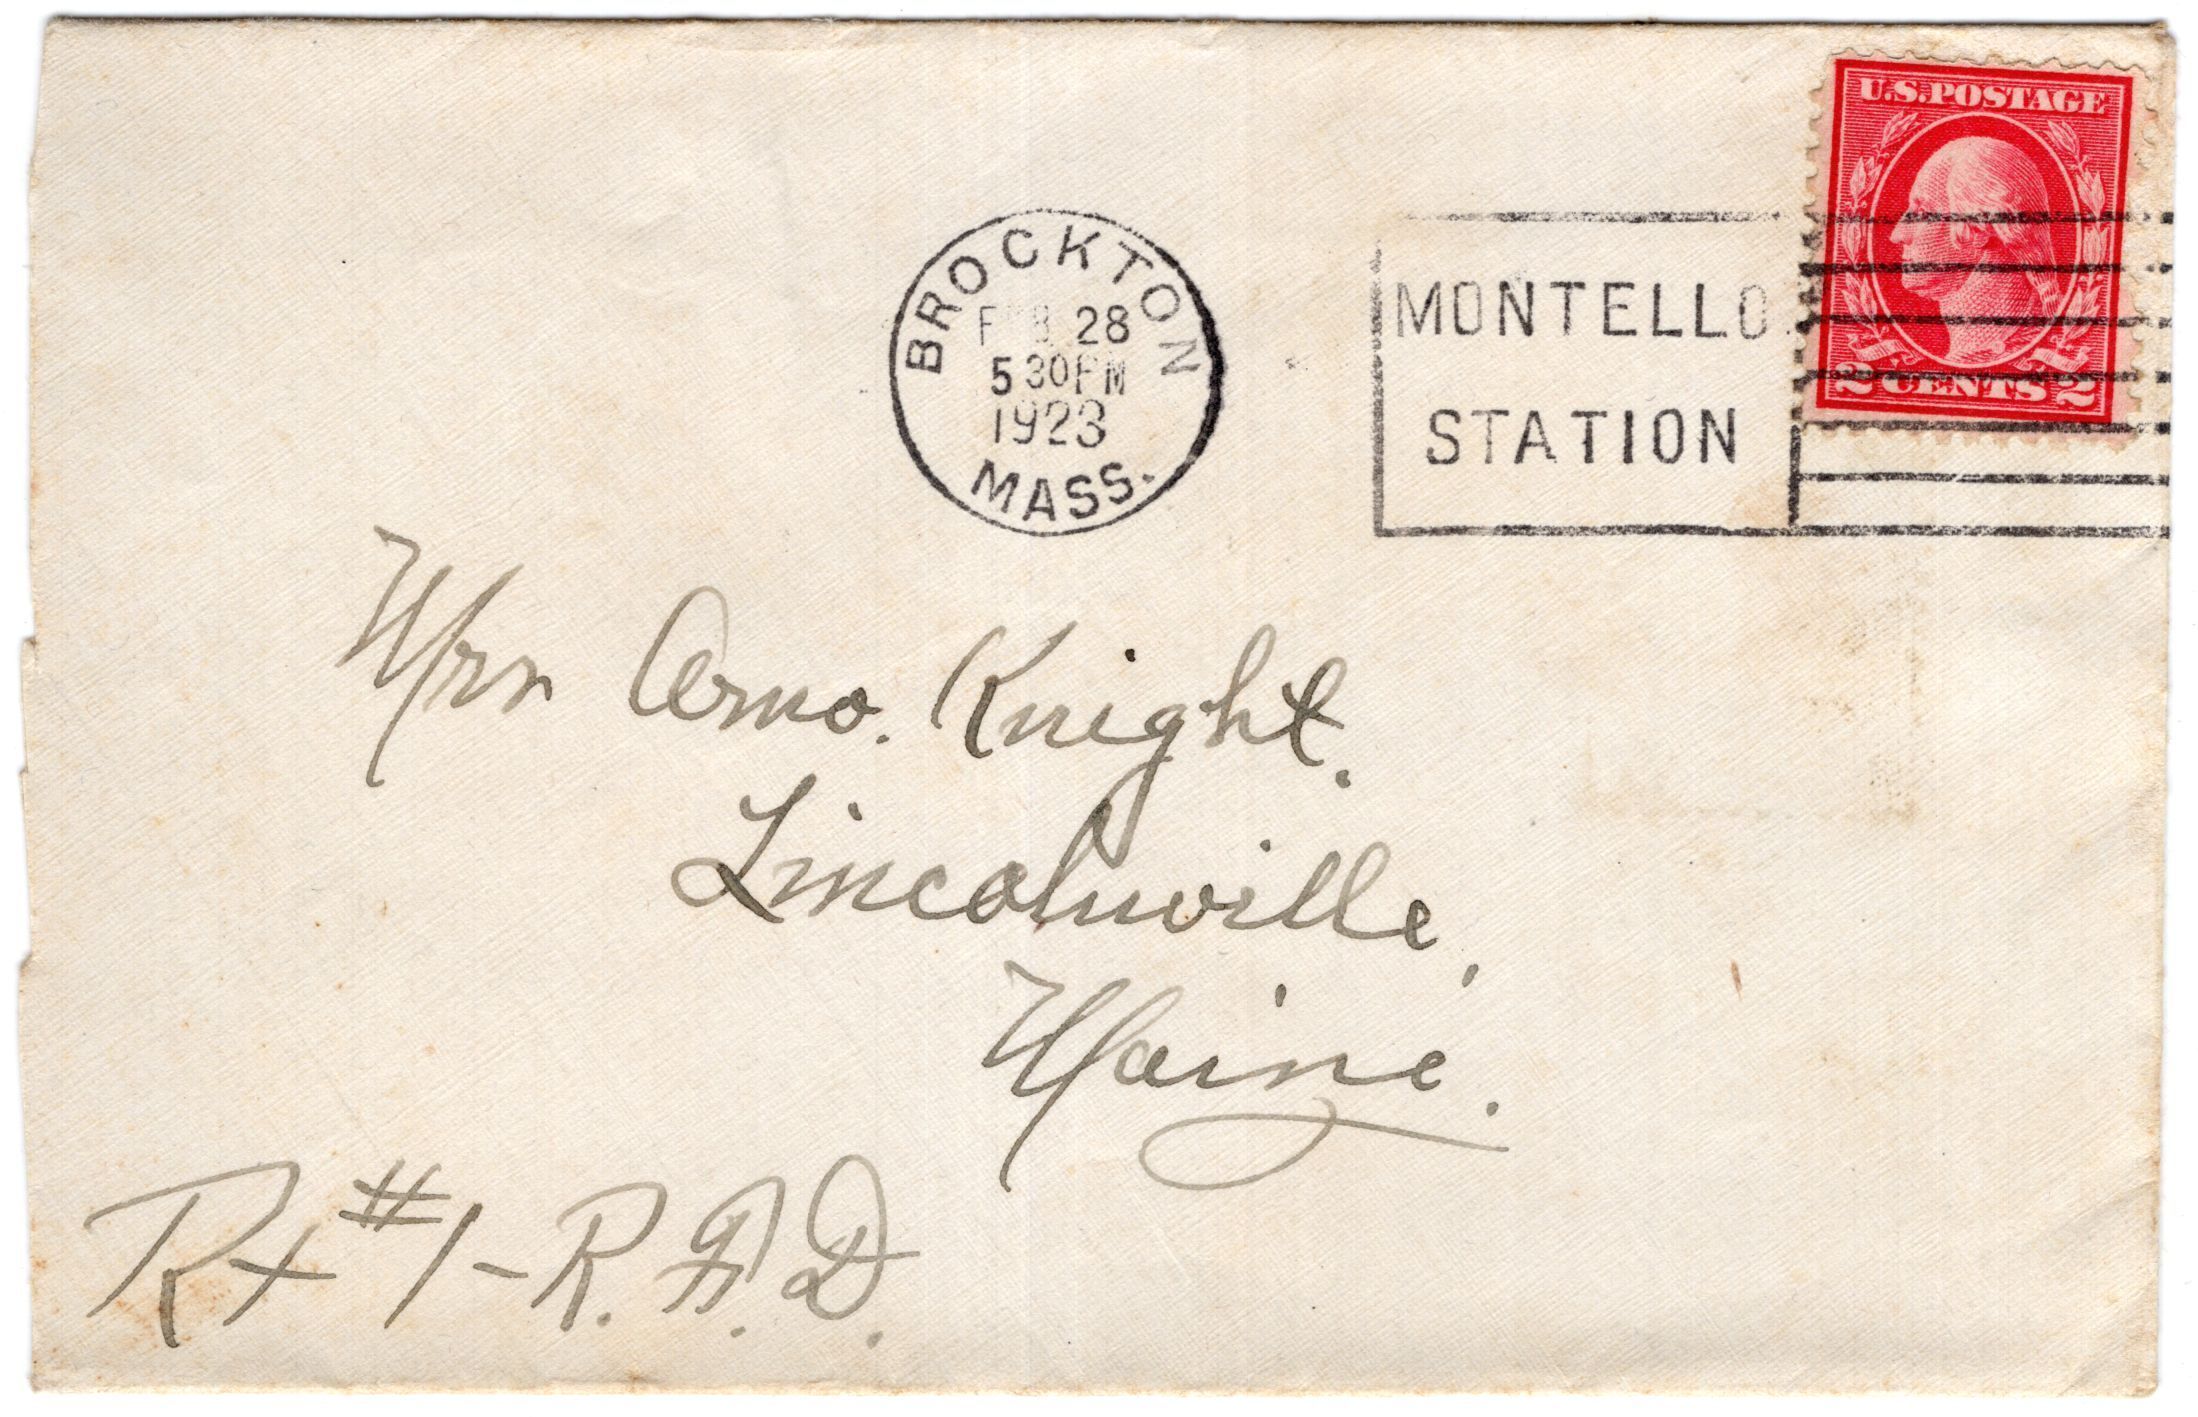 U.S. POSTAGE
2 CENTS 2
BROCKTON
FEB 28
5 30 PM
1923
MASS.
MONTELLO
STATION
Mrs Arno. Knight.
Lincolnville,
Maine.
Rt #1 - R. F. D.